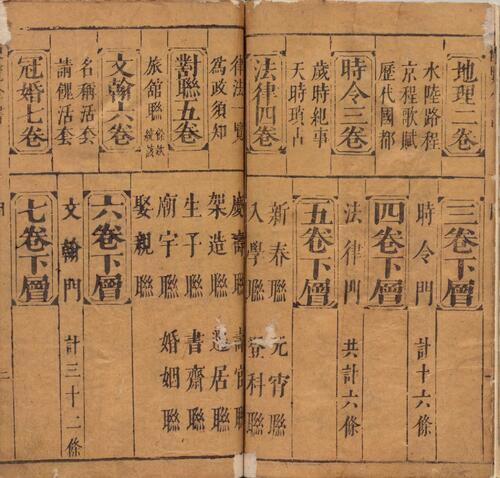 地理二卷
水陸路程
京程歌賦
歷代國都
時令三卷
歲時紀事
天時瑣占
法律四卷
律法 覽
為政須知
對聯五卷
旅館聯
文翰六卷
名稱活套
請俚活套
冠婚七卷
三卷下層
時令門 計十六條
四卷下層
法律門 共計六條
五卷下層
新春聯 元宵聯
入學聯 登科聯
慶壽聯 壽官聯
架造聯 遷居聯
生子聯 書齋聯
廟宇聯 婚姻聯
娶親聯
六卷下層
文翰門 計三十二條
七卷下層